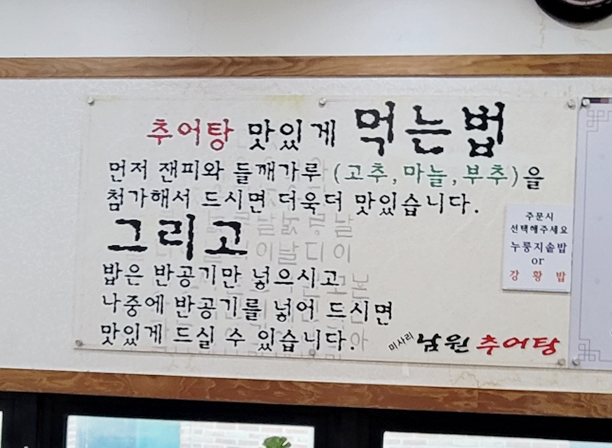 추어탕 맛있게 먹는법
먼저 잰피와 들깨가루 (고추,마늘,부추)을
첨가해서 드시면 더욱더 맛있습니다.
그리고
밥은 반공기만 넣으시고
나중에 반공기를 넣어 드시면
맛있게 드실 수 있습니다.
미사리 남원 추어탕
주문시
선택해주세요
누룽지솥밥
or
강황밥